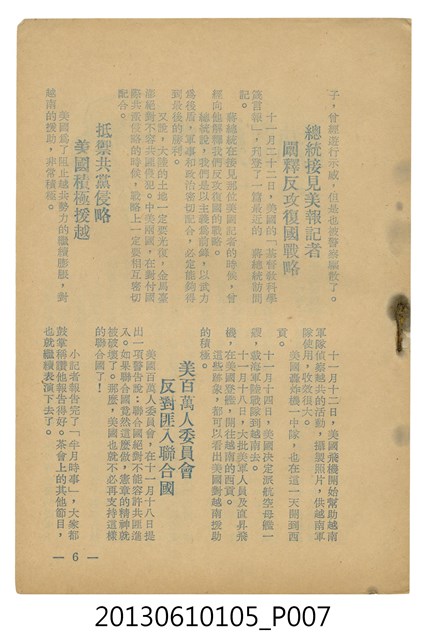 子，曾經遊行示威，但是也被警察驅散了。
總統接見美報記者
闡釋反攻復國戰略
十一月二十二日，美國的「基督教科學
箴言報」，刊登了一篇最近的 蔣總統訪問
記。
蔣總統在接見那位美國記者的時候，曾
經向他解釋我們反攻復國的戰略。
總統說，我們是以主義爲前鋒，以武力
爲後盾，軍事和政治密切配合，必定能夠得
到最後的勝利。
又說，大陸的土地一定要光復，金馬臺
澎絕對不容共匪侵犯。中美兩國，在對付國
際共黨侵略的時候，戰略上一定要相互密切
配合。
抵禦共黨侵略
美國積極援越
美國爲了阻止越共勢力的繼續膨脹，對
越南的援助，非常積極。
十一月十二日，美國飛機開始幫助越南
軍隊偵察越共的活動，攝製照片，供越南軍
隊使用，收效很大。
美國轟炸機一中隊，也在這一天開到西
貢。
十一月十四日，美國决定派航空母艦一
艘，載海軍陸戰隊到越南去。
十一月十八日，大批美軍人員及直昇飛
機，在美國登艦，開往越南的西貢。
這些跡象，都可以看出美國對越南援助
的積極。
美百萬人委員會
反對匪入聯合國
美國百萬人委員會，在十一月十八日提
出一項警告說：聯合國絕對不能容許共匪進
入。如果聯合國竟然這麽做，憲章的精神就
被破壞了。那麽，美國也就不必再支持這樣
的聯合國了！
小記者報告完了「半月時事」，大家都
鼓掌稱讚他報告得好。茶會上的其他節目，
也就繼續表演下去了。
— 6 —
20130610105_P007